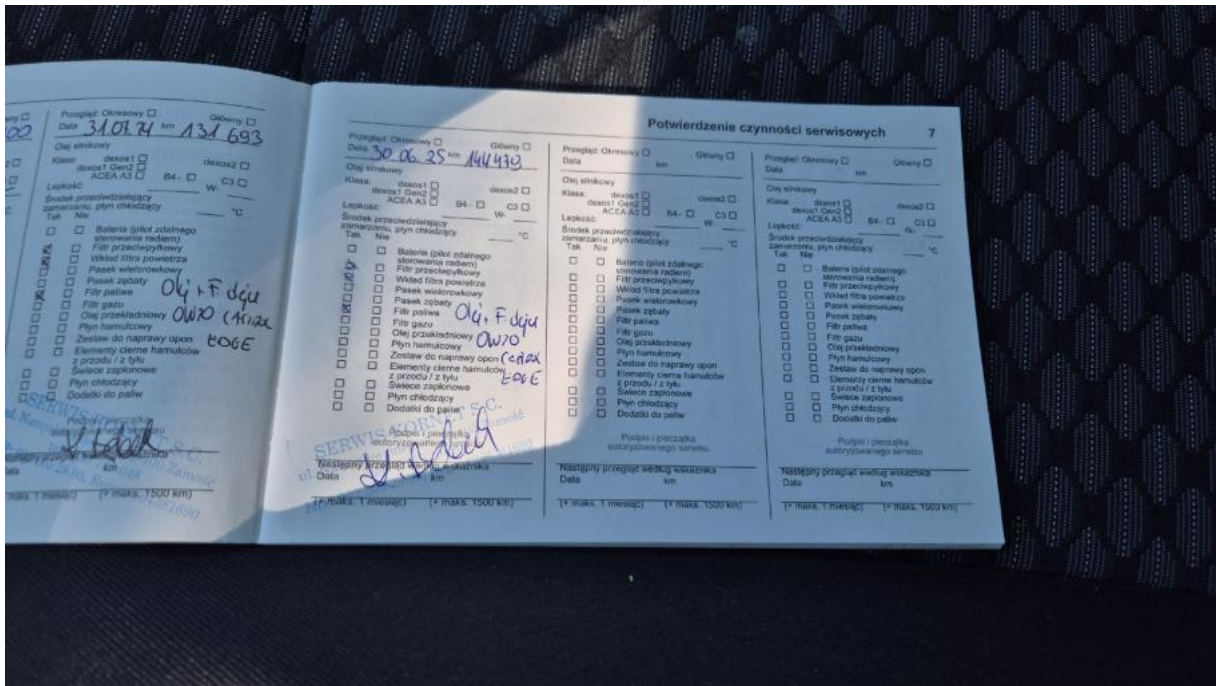 Przegląd: Okresowy ☐ Główny ☐
Data 31.07.24 km 131 693
Olej silnikowy
Klasa: dexos1 ☐ dexos2 ☐
dexos1 Gen2 ☐
ACEA A3 ☐ B4- ☐ C3 ☐
Lepkość: W-
Środek przeciwdziałający
zamarzaniu, płyn chłodzący °C
Tak Nie
Bateria (pilot zdalnego
sterowania radiem)
Filtr przeciwpyłkowy
Wkład filtra powietrza
Pasek wielorowkowy
Pasek zębaty
Filtr paliwa
Filtr gazu
Olej przekładniowy 0W20
Płyn hamulcowy
Zestaw do naprawy opon EDGE
Elementy cierne hamulców
z przodu / z tyłu
Świece zapłonowe
Płyn chłodzący
Dodatki do paliw
km
(+ maks. 1500 km)
Potwierdzenie czynności serwisowych 7
Przegląd: Okresowy ☐ Główny ☐
Data 30.06.25 km 144479
Olej silnikowy
Klasa: dexos1 ☐ dexos2 ☐
dexos1 Gen2 ☐
ACEA A3 ☐ B4- ☐ C3 ☐
Lepkość: W-
Środek przeciwdziałający
zamarzaniu, płyn chłodzący °C
Tak Nie
Bateria (pilot zdalnego
sterowania radiem)
Filtr przeciwpyłkowy
Wkład filtra powietrza
Pasek wielorowkowy
Pasek zębaty
Filtr paliwa
Filtr gazu
Olej przekładniowy 0W20
Płyn hamulcowy
Zestaw do naprawy opon
Elementy cierne hamulców EDGE
z przodu / z tyłu
Świece zapłonowe
Płyn chłodzący
Dodatki do paliw
SERWIS KORNET S.C.
Podpis i pieczątka
autoryzowanego serwisu
Następny przegląd według wskaźnika
Data km
(+ maks. 1 miesiąc) (+ maks. 1500 km)
Przegląd: Okresowy ☐ Główny ☐
Data km
Olej silnikowy
Klasa: dexos1 ☐ dexos2 ☐
dexos1 Gen2 ☐
ACEA A3 ☐ B4- ☐ C3 ☐
Lepkość: W-
Środek przeciwdziałający
zamarzaniu, płyn chłodzący °C
Tak Nie
Bateria (pilot zdalnego
sterowania radiem)
Filtr przeciwpyłkowy
Wkład filtra powietrza
Pasek wielorowkowy
Pasek zębaty
Filtr paliwa
Filtr gazu
Olej przekładniowy
Płyn hamulcowy
Zestaw do naprawy opon
Elementy cierne hamulców
z przodu / z tyłu
Świece zapłonowe
Płyn chłodzący
Dodatki do paliw
Podpis i pieczątka
autoryzowanego serwisu
Następny przegląd według wskaźnika
Data km
(+ maks. 1 miesiąc) (+ maks. 1500 km)
Przegląd: Okresowy ☐ Główny ☐
Data km
Olej silnikowy
Klasa: dexos1 ☐ dexos2 ☐
dexos1 Gen2 ☐
ACEA A3 ☐ B4- ☐ C3 ☐
Lepkość: W-
Środek przeciwdziałający
zamarzaniu, płyn chłodzący °C
Tak Nie
Bateria (pilot zdalnego
sterowania radiem)
Filtr przeciwpyłkowy
Wkład filtra powietrza
Pasek wielorowkowy
Pasek zębaty
Filtr paliwa
Filtr gazu
Olej przekładniowy
Płyn hamulcowy
Zestaw do naprawy opon
Elementy cierne hamulców
z przodu / z tyłu
Świece zapłonowe
Płyn chłodzący
Dodatki do paliw
Podpis i pieczątka
autoryzowanego serwisu
Następny przegląd według wskaźnika
Data km
(+ maks. 1 miesiąc) (+ maks. 1500 km)